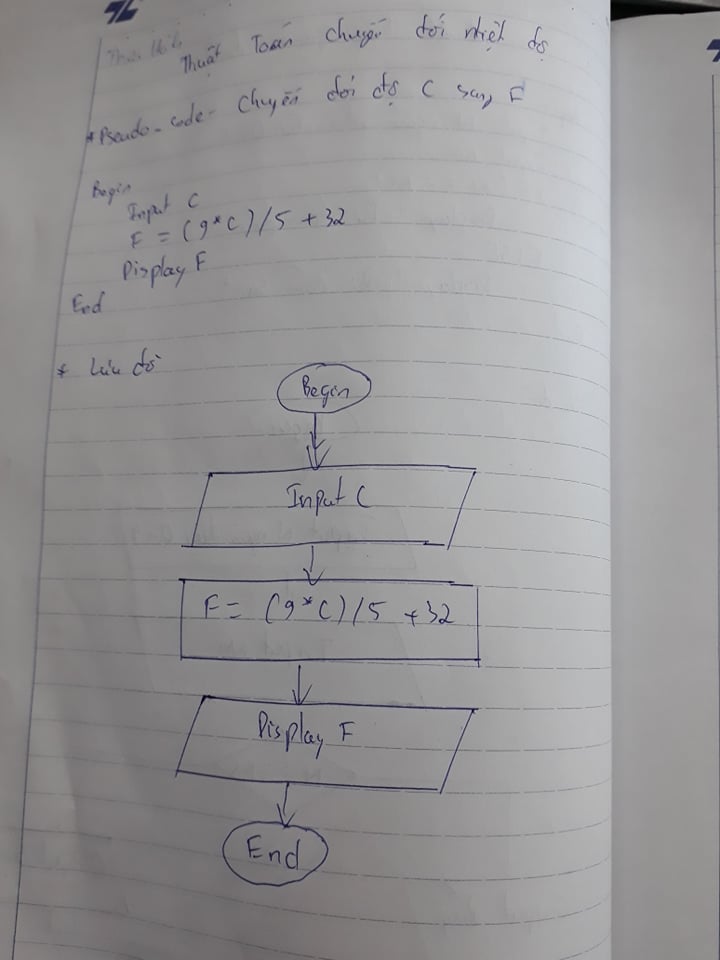 Thuật Toán chuyển đổi nhiệt độ
*Pseudo-code - Chuyển đổi độ C sang F
Begin
Input C
F = (9*C)/5 + 32
Display F
End
* Lưu đồ
Begin
Input C
F = (9*C)/5 + 32
Display F
End